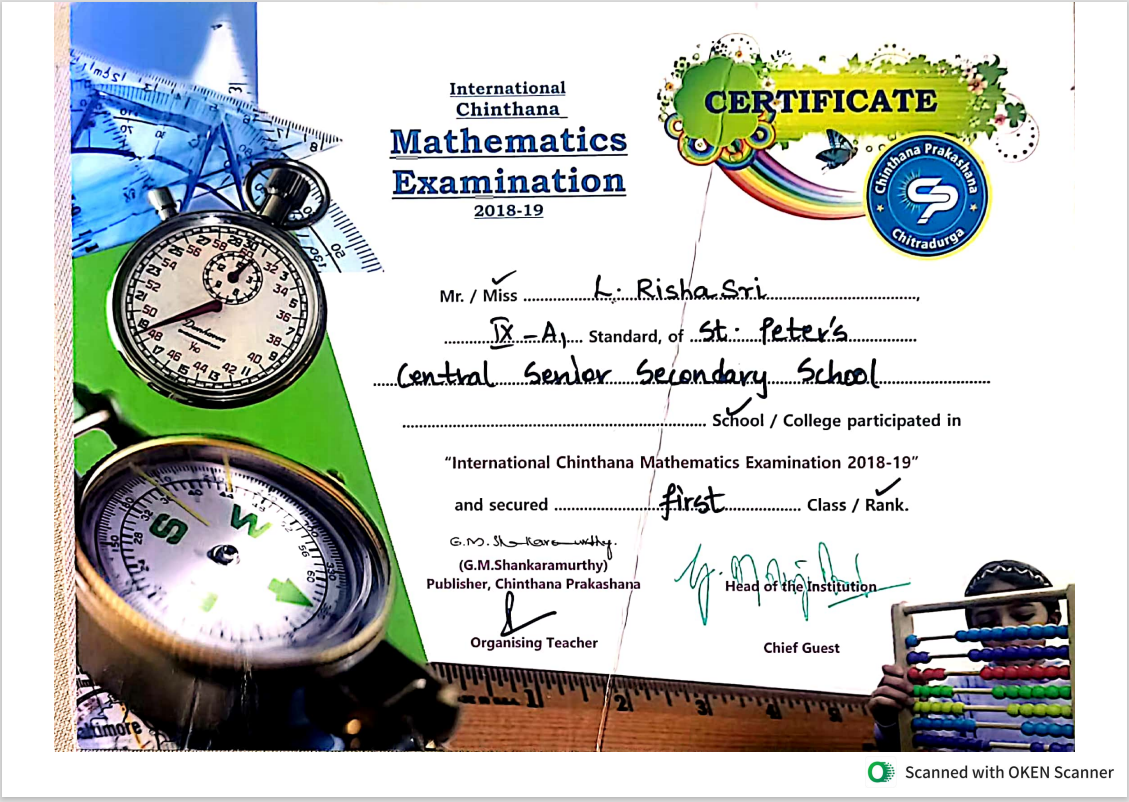 International
Chinthana
Mathematics
Examination
2018-19
CERTIFICATE
Chinthana Prakashana
SP
Chitradurga
Mr. / Miss ✓ L. Risha Sri,
IX - A, Standard, of St. Peter's
Central Senior Secondary School
School ✓ / College participated in
“International Chinthana Mathematics Examination 2018-19”
and secured first Class / Rank. ✓
(G.M.Shankaramurthy)
Publisher, Chinthana Prakashana
Head of the Institution
Organising Teacher
Chief Guest
S
W
1 2 3 4 5
altimore
Scanned with OKEN Scanner